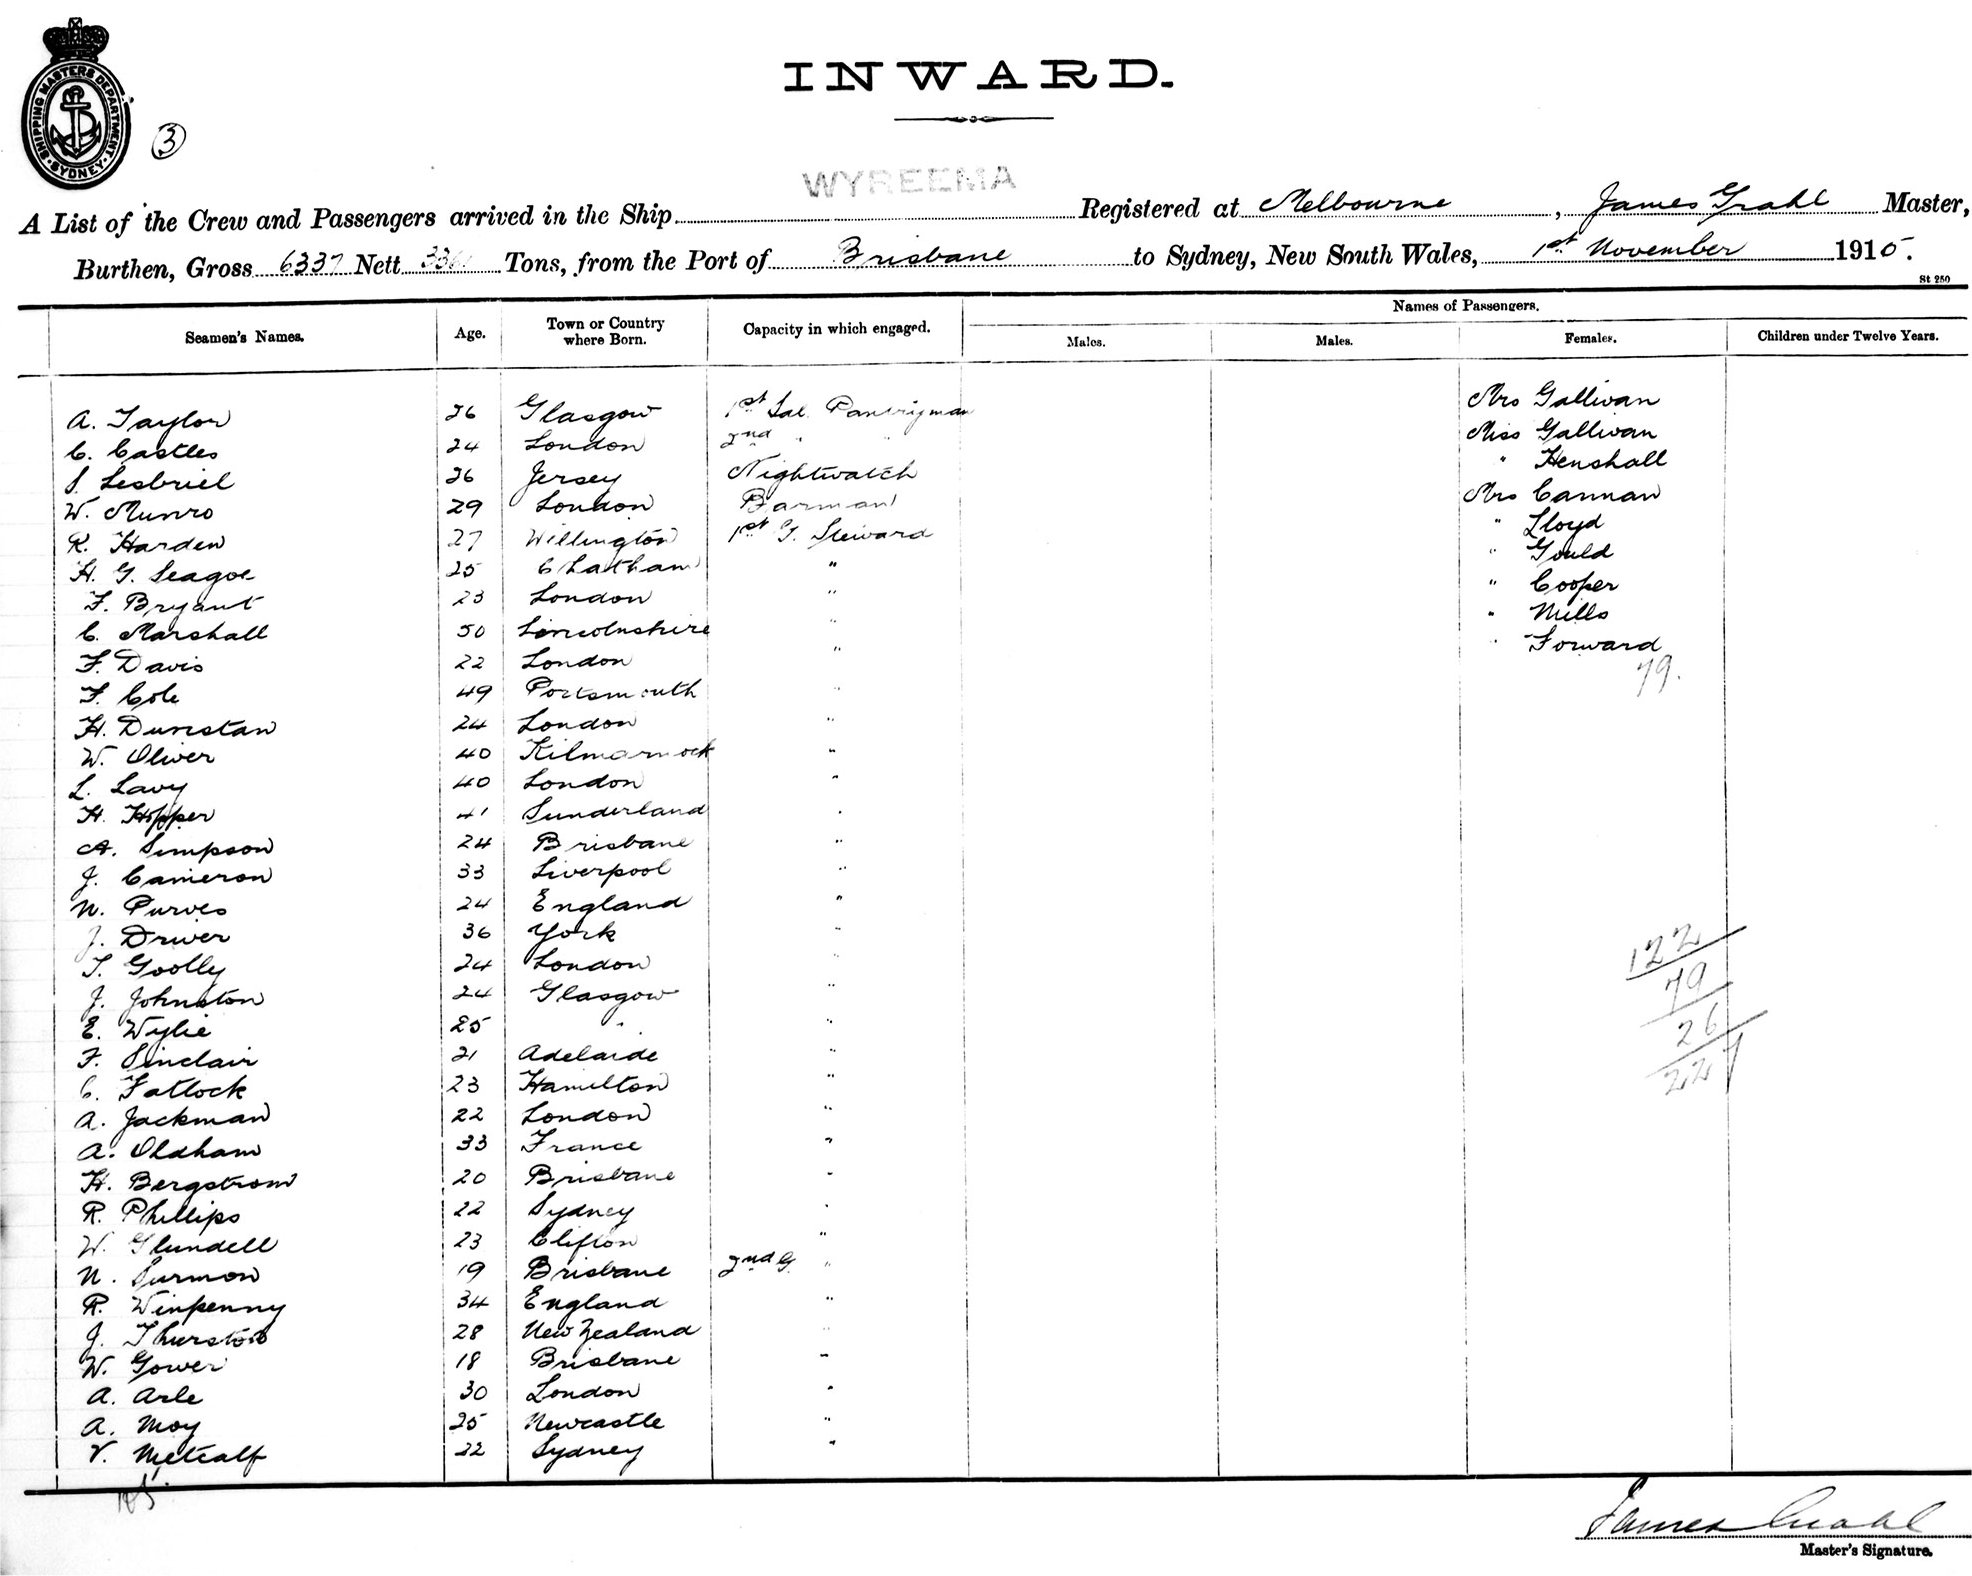 SHIPPING MASTERS DEPARTMENT · SYDNEY ·
3
INWARD.
WYREEMA
A List of the Crew and Passengers arrived in the Ship Registered at Melbourne, James Grahl Master,
Burthen, Gross 6337 Nett Tons, from the Port of Brisbane to Sydney, New South Wales, 1st November 1915.
St 250
Names of Passengers.
Seamen's Names. Age. Town or Country where Born. Capacity in which engaged. Males. Males. Females. Children under Twelve Years.
A. Taylor 26 Glasgow 1st Sal. Pantryman Mrs Gallivan
C. Castles 24 London 2nd " " Miss Gallivan
S. Lesbriel 26 Jersey Nightwatch " Henshall
W. Munro 29 London Barman Mrs Cannan
R. Harden 27 Willington 1st G. Steward " Lloyd
H. G. Seagoe 25 Chatham " " Gould
F. Bryant 23 London " " Cooper
C. Marshall 50 Lincolnshire " " Mills
F. Davis 22 London " " Forward
79.
F. Cole 49 Portsmouth "
H. Dunstan 24 London "
W. Oliver 40 Kilmarnock "
L. Lavy 40 London "
H. Hopper 41 Sunderland "
A. Simpson 24 Brisbane "
J. Cameron 33 Liverpool "
N. Purves 24 England "
J. Driver 36 York "
T. Goolly 24 London "
J. Johnston 24 Glasgow "
E. Wylie 25 " "
F. Sinclair 21 Adelaide "
C. Tatlock 23 Hamilton "
A. Jackman 22 London "
A. Oldham 33 France "
H. Bergstrom 20 Brisbane "
R. Phillips 22 Sydney "
W. Glundell 23 Clifton "
N. Surmon 19 Brisbane 2nd G. "
R. Winpenny 34 England "
J. Thurston 28 New Zealand "
W. Gower 18 Brisbane "
A. Arle 30 London "
A. Moy 25 Newcastle "
V. Metcalf 22 Sydney "
122
79
26
227
James Grahl
Master's Signature.